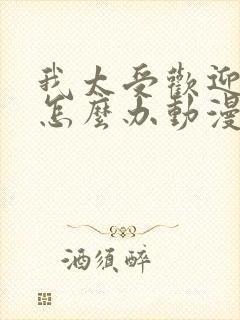 我太受歡迎
怎麼办動漫
酒須醉